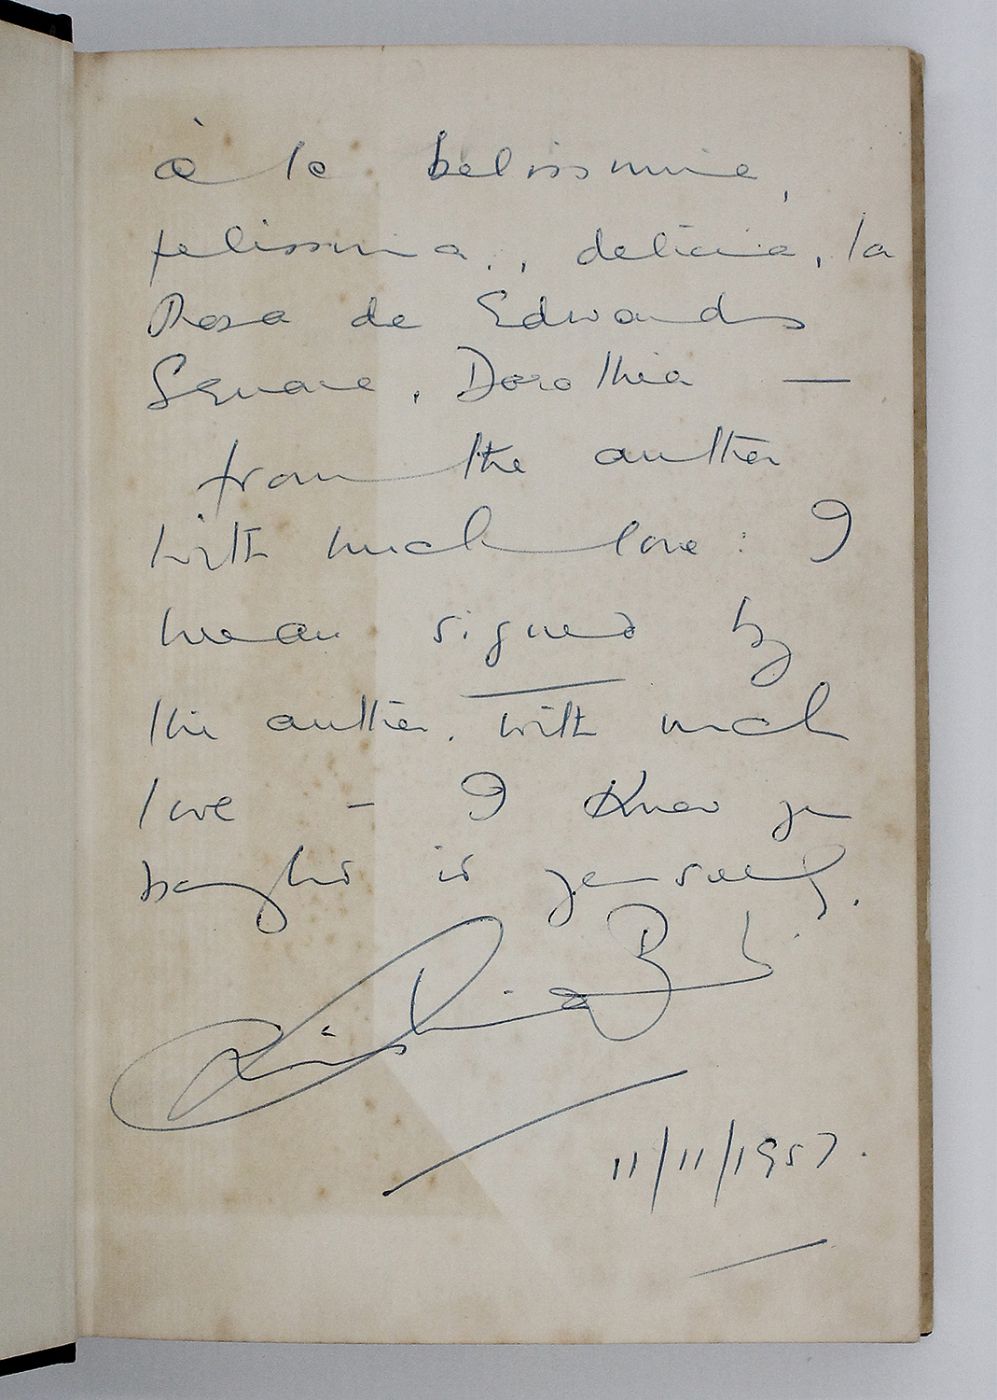 à la belissimie,
felissima, , delicia, la
Rosa de Edwards
Square, Dorothea —
from the author
with much love: I
mean signed by
the author. with much
love — I know you
bought it yourself.
11/11/1957.